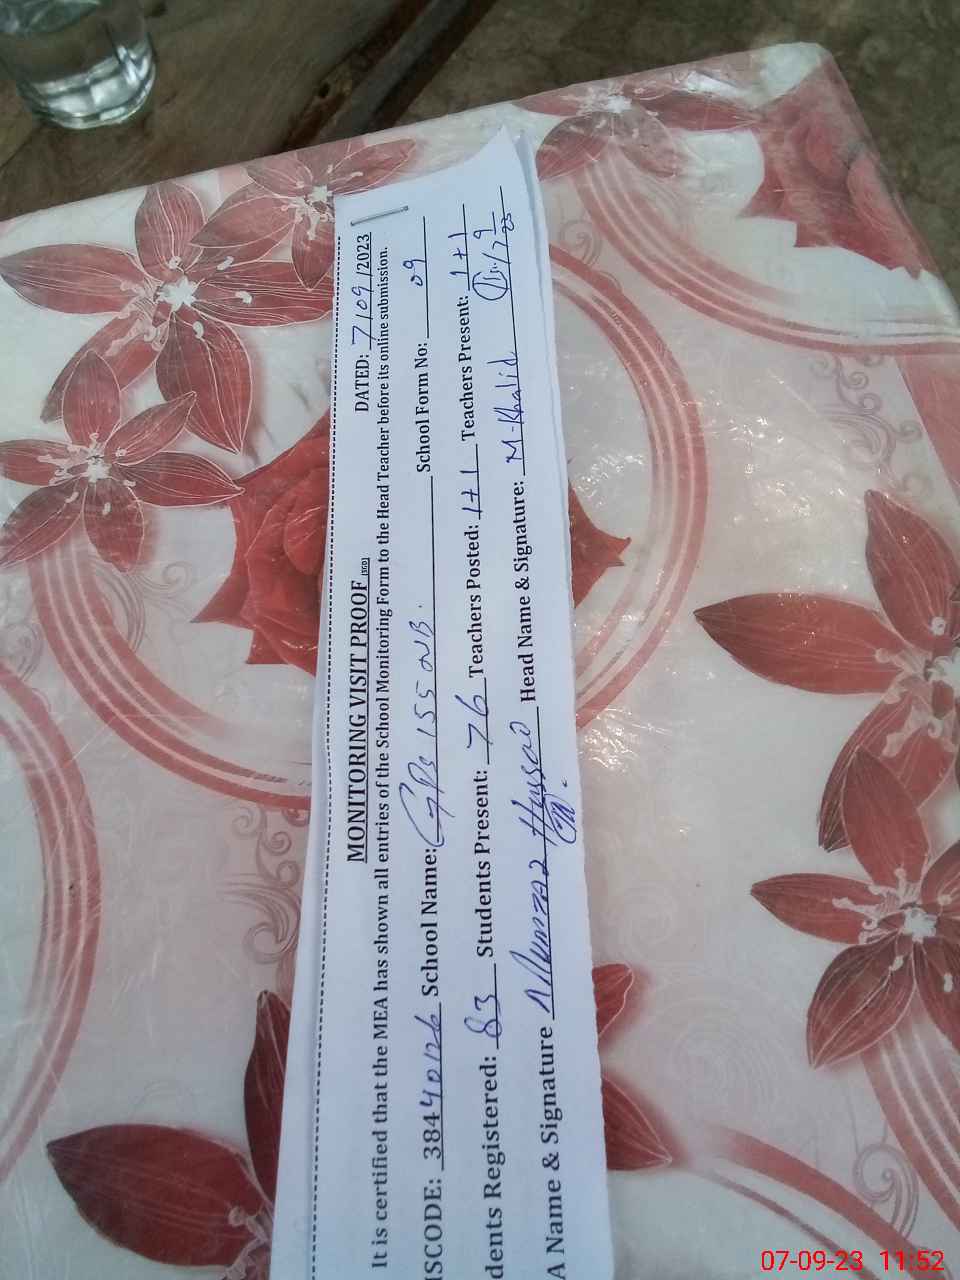 MONITORING VISIT PROOF DATED: 7/09/2023
It is certified that the MEA has shown all entries of the School Monitoring Form to the Head Teacher before its online submission.
ISCODE: 38440126 School Name: GPS 155 NB. School Form No: 09
dents Registered: 83 Students Present: 76 Teachers Posted: 1+1 Teachers Present: 1+1
A Name & Signature Mumtaz Hassan Head Name & Signature: M-Khalid 7/9 23
07-09-23 11:52